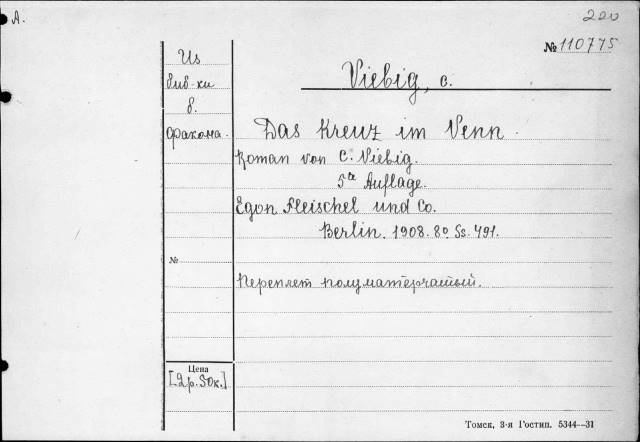 А.
220
№ 110775
Из
биб-ки
б.
Факома.
Viebig, C.
Das Kreuz im Venn.
Roman von C. Viebig.
5te Auflage.
Egon Fleischel und Co.
Berlin. 1908. 8º. Ss. 491.
№
Переплет полуматерчатый.
Цена
[2 р. 50 к.]
Томск, 3-я Гостип. 5344—31